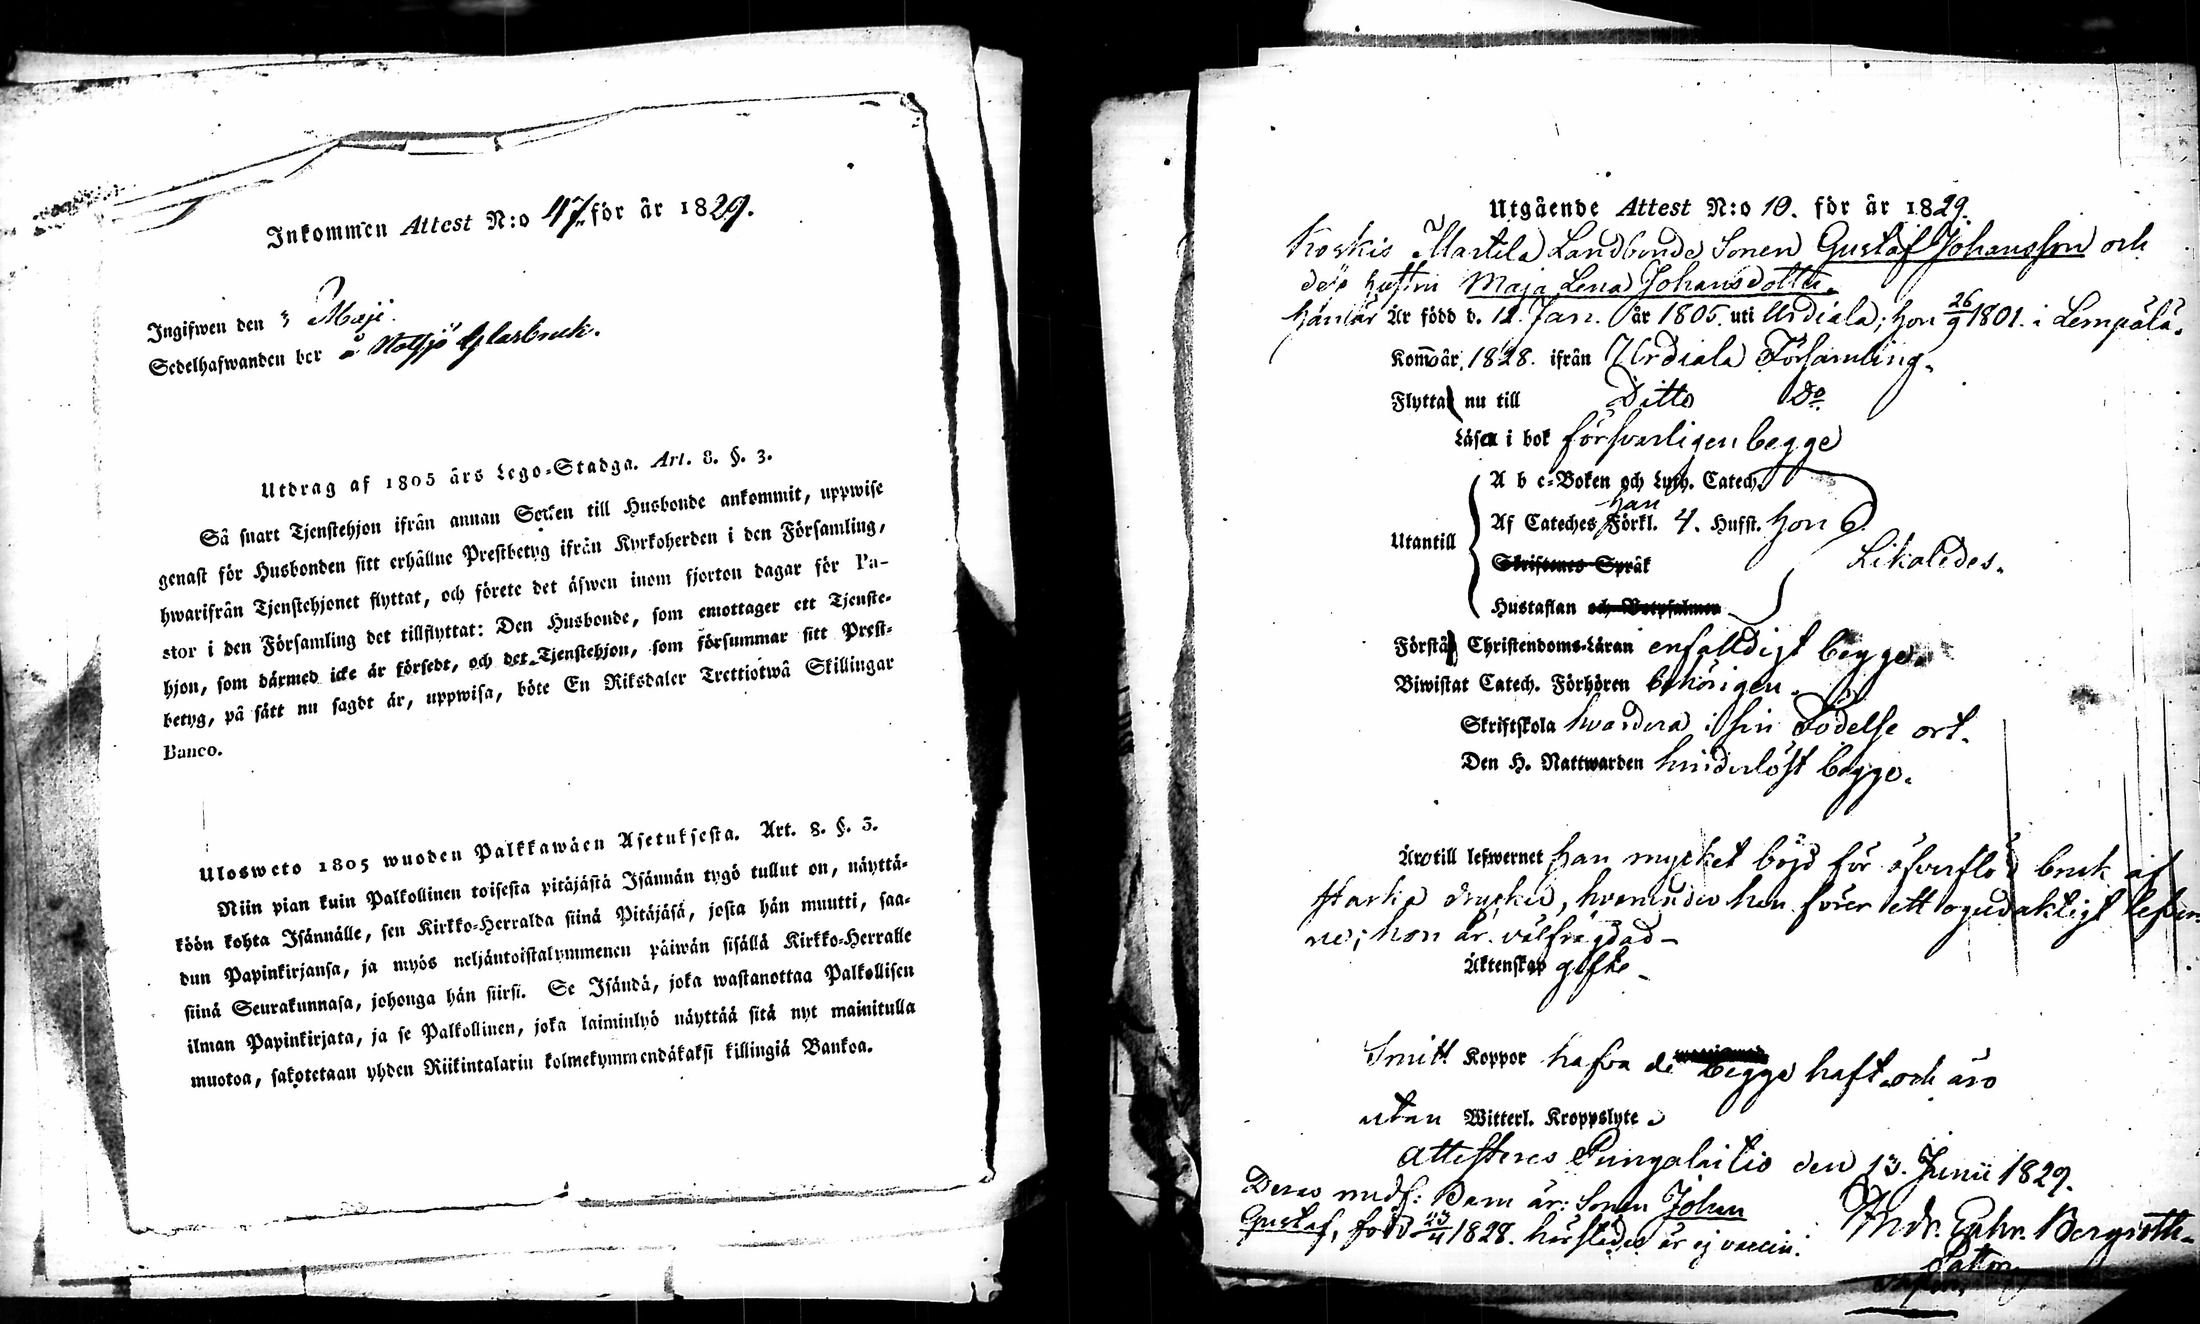 Inkommen Attest N:o 47 för år 1829.
Ingifwen den 3 Maji.
Sedelhafwanden bor å Notsjö Glasbruk.
Utdrag af 1805 års Lego-Stadga. Art. 8. §. 3.
Så snart Tjenstehjon ifrån annan Socken till Husbonde ankommit, uppwise
genast för Husbonden sitt erhållne Prestbetyg ifrån Kyrkoherden i den Församling,
hwarifrån Tjenstehjonet flyttat, och förete det äfwen inom fjorton dagar för Pa-
stor i den Församling det tillflyttat: Den Husbonde, som emottager ett Tjenste-
hjon, som därmed icke är försedt, och det Tjenstehjon, som försummar sitt Prest-
betyg, på sätt nu sagdt är, uppwisa, böte En Riksdaler Trettiotwå Skillingar
Banco.
Ulosweto 1805 wuoden Palkkawäen Asetuksesta. Art. 8. §. 3.
Niin pian kuin Palkollinen toisesta pitäjästä Isännän tygö tullut on, näyttä-
köön kohta Isännälle, sen Kirkko-Herralda siinä Pitäjäsä, josta hän muutti, saa-
dun Papinkirjansa, ja myös neljäntoistakymmenen päiwän sisällä Kirkko-Herralle
siinä Seurakunnasa, johonga hän siirsi. Se Isändä, joka wastanottaa Palkollisen
ilman Papinkirjata, ja se Palkollinen, joka laiminlyö näyttää sitä nyt mainitulla
muotoa, sakotetaan yhden Riikintalarin kolmekymmendäkaksi killingiä Bankoa.
Utgående Attest N:o 10. för år 1829.
Koskis Martela Landbonde Sonen Gustaf Johansson och
dess hustru Maja Lena Johansdotter.
Är född d. 12. Jan. år 1805. uti Urdiala; hon 26/9 1801. i Lempälä.
Kom år 1828. ifrån Urdiala Församling.
Flytta nu till Ditto Do
Läsa i bok försvarligen begge
A b c-Boken och Luth. Catech.
han
Utantill Af Cateches Förkl. 4. Hufst. hon 6
Skriftenes Språk Likaledes.
Hustaflan och Botpsalmen
Förstå Christendoms-Läran enfalldigt begge.
Biwistat Catech. Förhören behörigen.
Skriftskola hvardera i sin Födelse ort.
Den H. Nattwarden hinderlöst begge.
Äro till lefwernet han mycket böjd för öfverflöd bruk af
starka drycker, hvarunder han förer ett ogudaktigt lefver
ne; hon är välfrägdad
Äktenskap gifte
Smitt Koppor hafva de begge haft och äro
utan Witterl. Kroppslyte
attesteras Pungalaitio den 13. Junii 1829.
Deras medf: Barn är: Sonen Johan
Gustaf, född 23/4 1828. härstädes är ej vaccin:
Andr. Ephr. Bergroth
Pastor